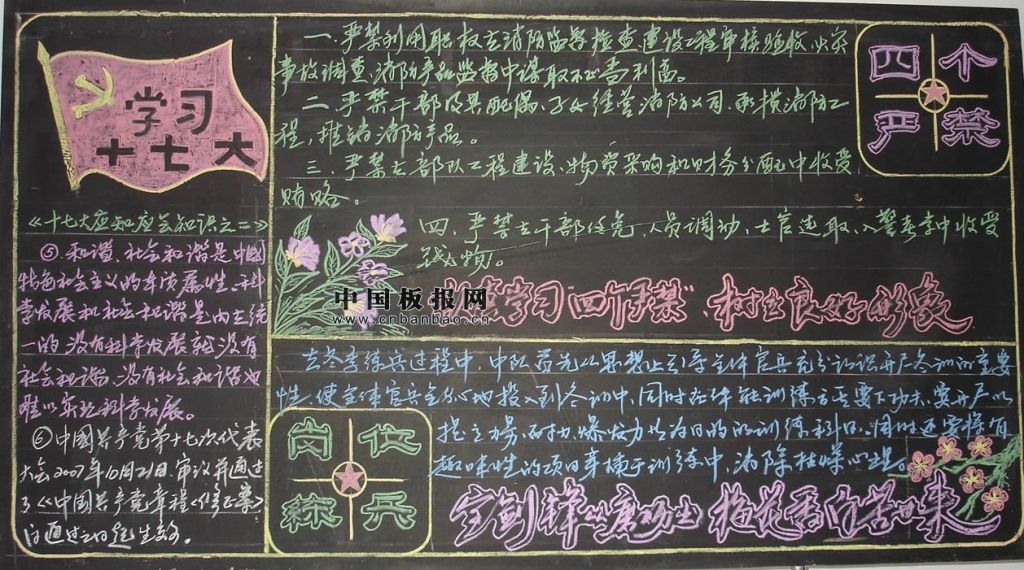 学习
十七大
《十七大应知应会知识之二》
⑤和谐,社会和谐是中国
特色社会主义的本质属性。科
学发展和社会和谐是内在统
一的,没有科学发展就没有
社会和谐,没有社会和谐也
难以实现科学发展。
⑥中國共产党第十七次代表
大会2007年10月21日,审议并通过
了《中國共产党章程<修正案>》
自通过之日起生效。
一、严禁利用职权在消防监督检查,建设工程审核验收,火灾
事故调查,消防产品监督中谋取不正当利益。
二、严禁干部及其配偶、子女经营消防公司,承揽消防工
程,推销消防产品。
三、严禁在部队工程建设、物资采购和财务分配中收受
贿赂。
四、严禁在干部任免,人员调动,士官选取,入警考学中收受
钱物。
四个
严禁
学习“四个严禁”,树立良好形象
中国板报网
www.cnbanbao.cn
去冬季练兵过程中,中队首先从思想上引导全体官兵充分认识开严冬训的重要
性,使全体官兵全身心地投入到冬训中,同时在体能训练方面要下功夫,要开严以
力、耐力、爆发力为目的的训练科目。同时还要将有
趣味性的项目穿插于训练中,消除枯燥心理。
岗位
练兵
宝剑锋从磨砺出 梅花香自苦寒来